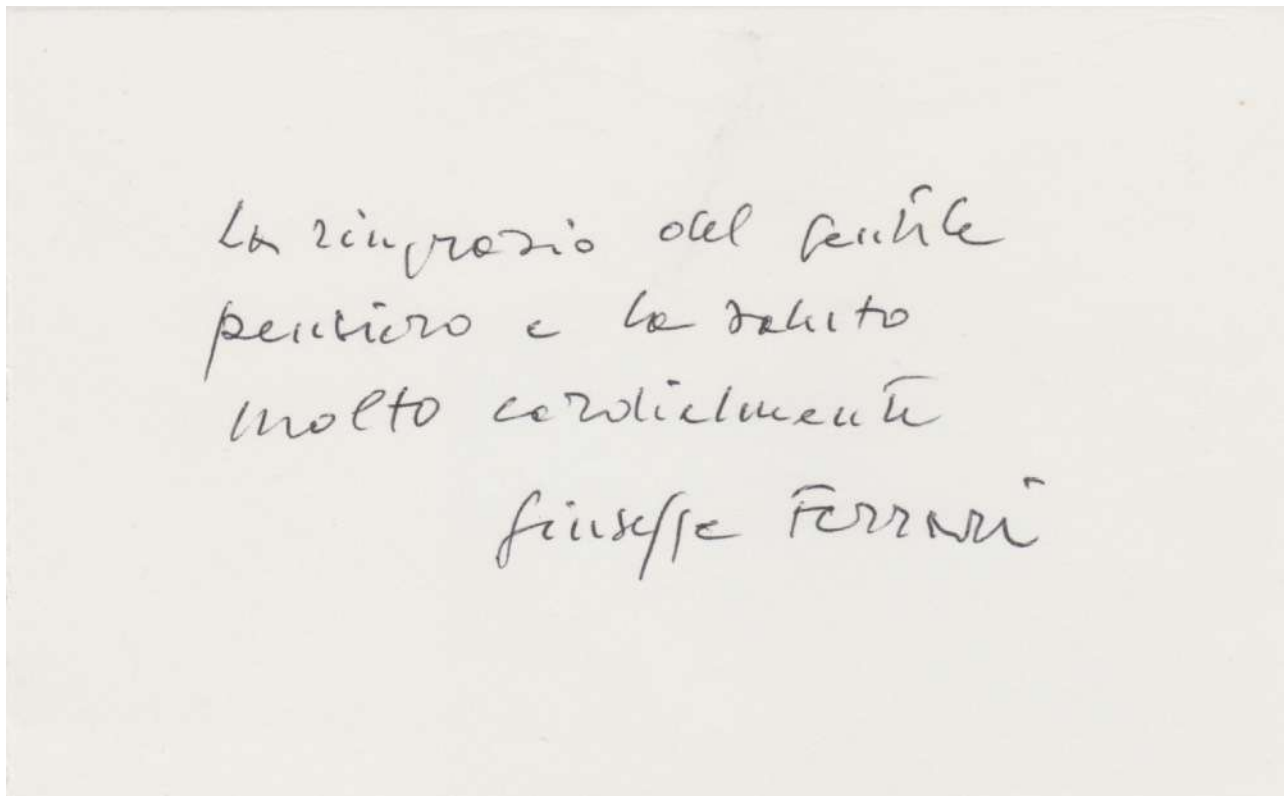 La ringrazio del gentile
pensiero e la saluto
molto cordialmente
Giuseppe Ferrari